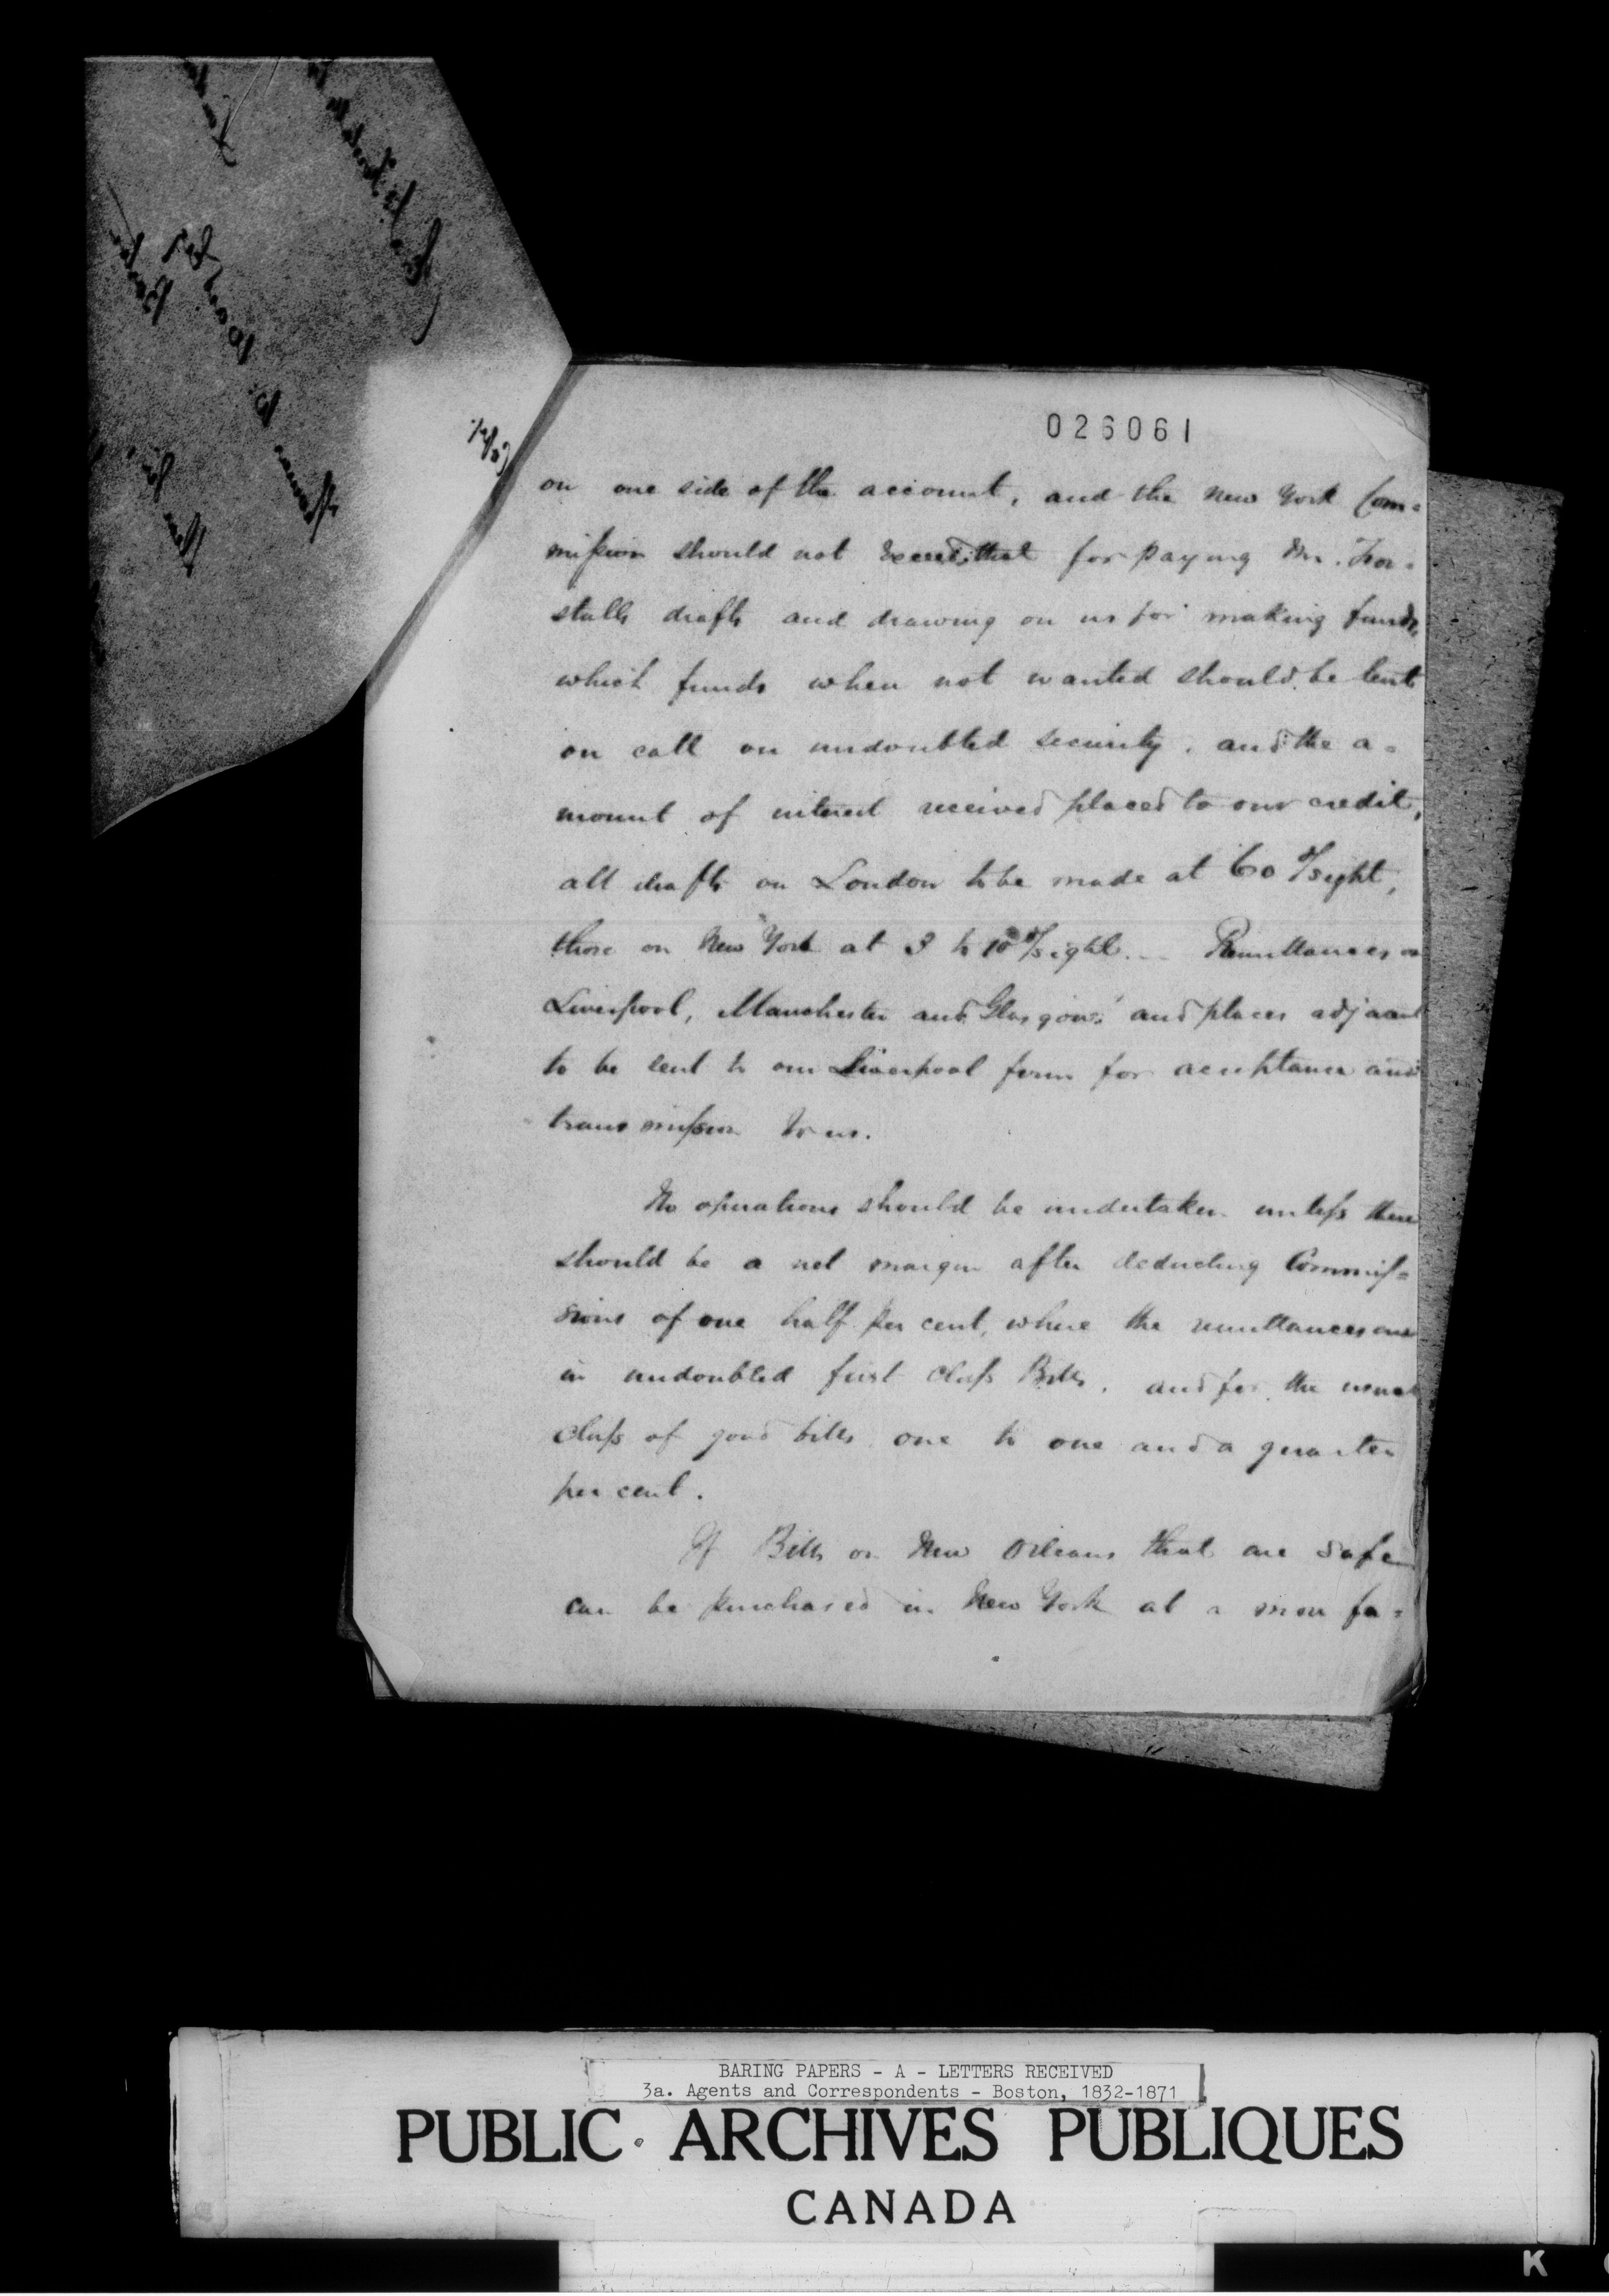 026061
on one side of the account, and the New York Com=
mission should not exceed that for paying Mr. For=
stalls drafts and drawing on us for making funds,
which funds when not wanted should be lent
on call on undoubted security, and the a=
mount of interest received placed to our credit,
all drafts on London to be made at 60 d/sight,
those on New York at 3 to 10 d/sight. Remittances on
Liverpool, Manchester and Glasgow and places adjacent
to be sent to our Liverpool firm for acceptance and
transmission to us.
No operations should be undertaken unless there
should be a net margin after deducting Commis=
sions of one half per cent, where the remittances are
in undoubted first class Bills, and for the usual
class of good bills one to one and a quarter
per cent.
If Bills on New Orleans that are safe
can be purchased in New York at a more fa=
BARING PAPERS - A - LETTERS RECEIVED
3a. Agents and Correspondents - Boston, 1832-1871
PUBLIC ARCHIVES PUBLIQUES
CANADA
K